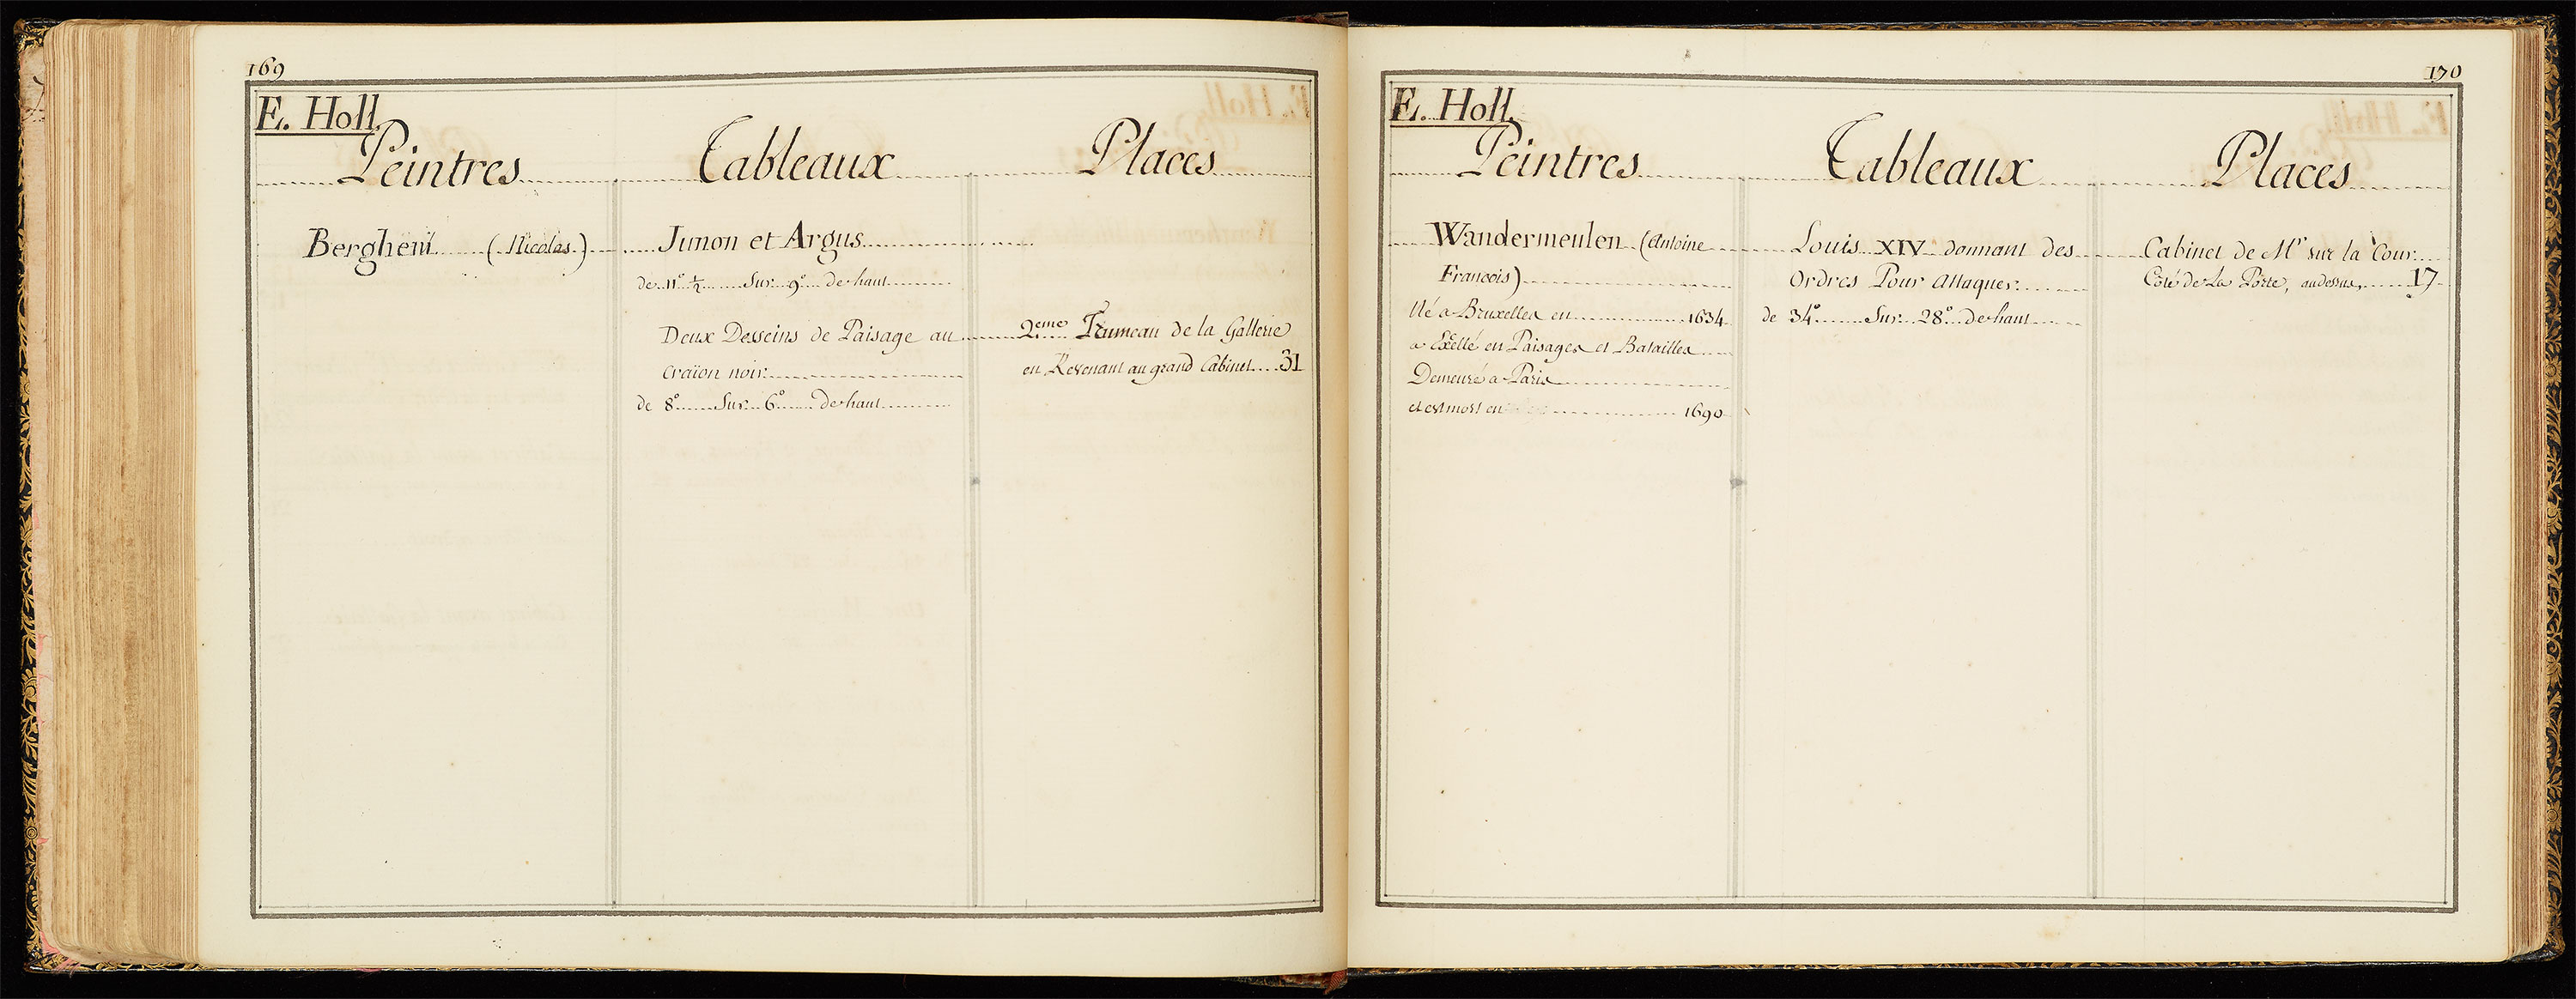 169
E. Holl.
Peintres Tableaux Places
Berghem (Nicolas) Junon et Argus
de 11º ½ Sur 9º de haut
Deux Desseins de Paisage au 2.eme Trumeau de la Gallerie
craïon noir en Revenant au grand Cabinet 31
de 8º Sur 6º de haut
170
E. Holl.
Peintres Tableaux Places
Wandermeulen (Antoine Louis XIV donnant des Cabinet de Mr sur la Cour
Francois) Ordres Pour Attaquer Côté de La Porte, audessus, 17
Né a Bruxelles en 1634 de 34º Sur 28º de haut
a Exellé en Paisages et Batailles
Demeuré a Paris
et est mort en 1690